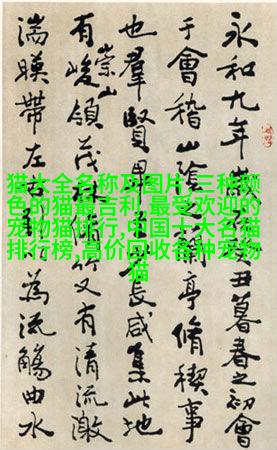 永和九年丑暮春之初會
于會稽山陰亭脩稧事
也羣賢長咸集此地
有崇山峻領茂竹又有清流激
湍暎帶左為流觴曲水
猫大全名称及图片,三种颜
色的猫最吉利,最受欢迎的
宠物猫排行,中国十大名猫
排行榜,高价回收各种宠物
猫